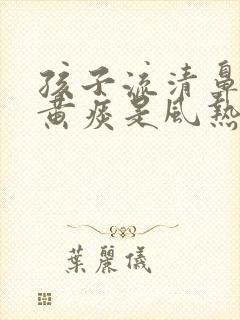 孩子流清鼻
黄痰是風熱
葉麗儀